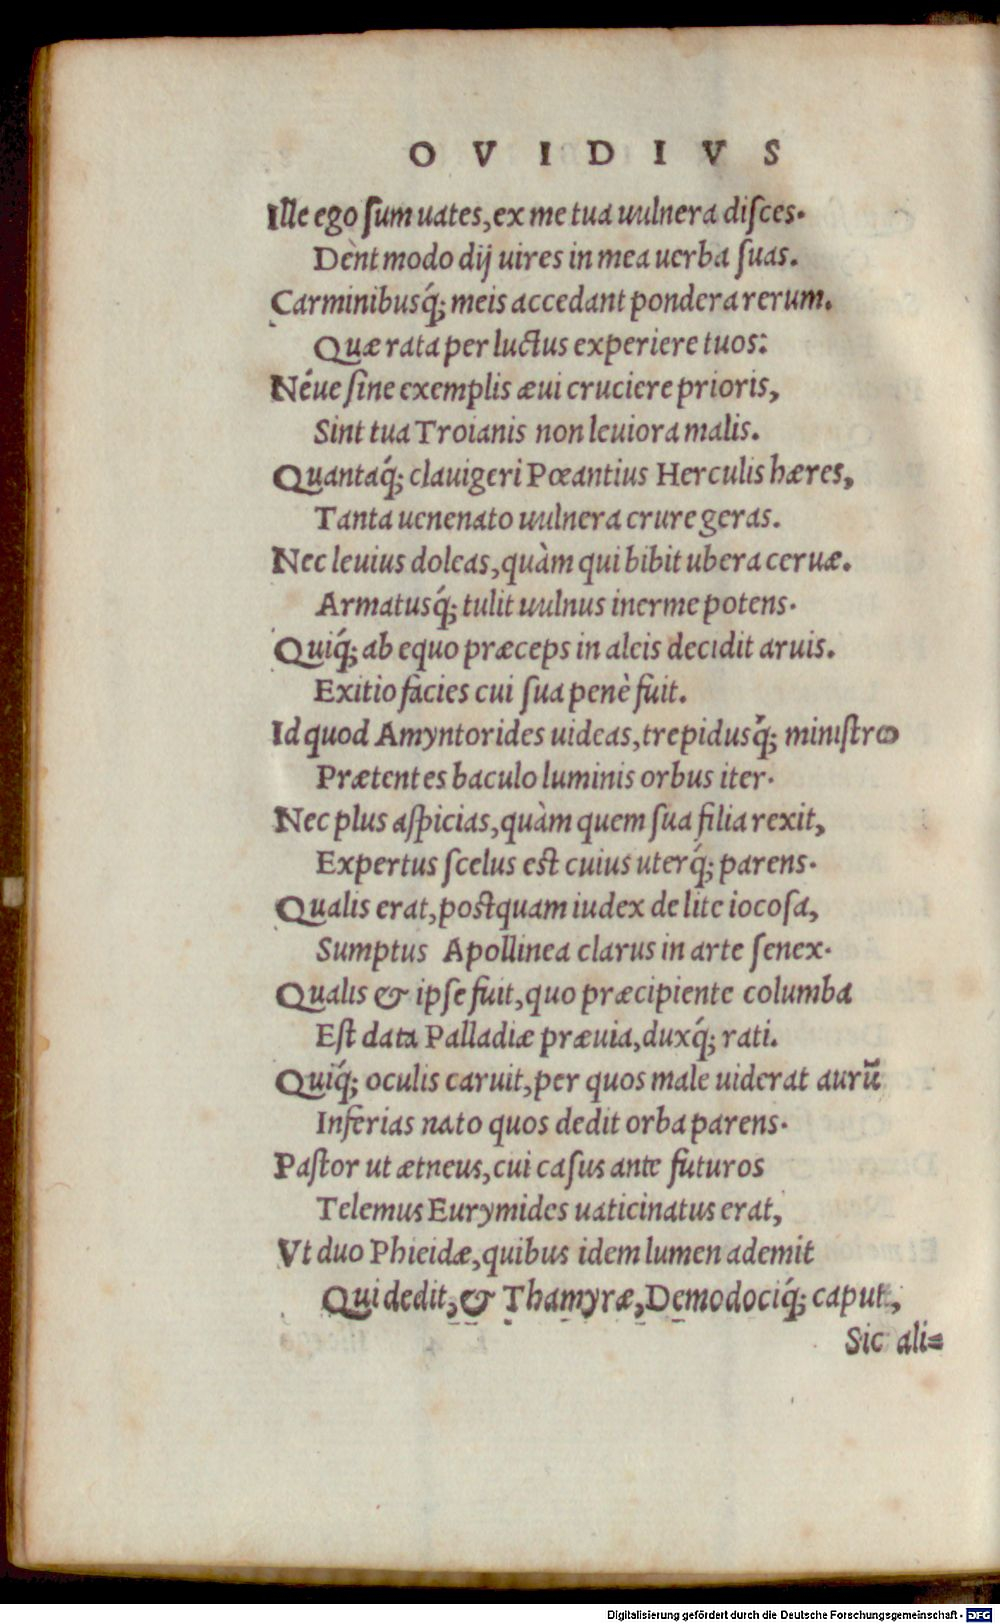 OVIDIVS
Ille ego ſum uates, ex me tua uulnera diſces.
Dènt modo dij uires in mea uerba ſuas.
Carminibusq́; meis accedant pondera rerum.
Quæ rata per luctus experiere tuos:
Néue ſine exemplis æui cruciere prioris,
Sint tua Troianis non leuiora malis.
Quantaq́; clauigeri Pœantius Herculis hæres,
Tanta uenenato uulnera crure geras.
Nec leuius doleas, quàm qui bibit ubera ceruæ.
Armatusq́; tulit uulnus inerme potens.
Quiq́; ab equo præceps in aleis decidit aruis.
Exitio facies cui ſua penè fuit.
Id quod Amyntorides uideas, trepidusq́; miniſtro
Prætentes baculo luminis orbus iter.
Nec plus aſpicias, quàm quem ſua filia rexit,
Expertus ſcelus eſt cuius uterq́; parens.
Qualis erat, poſtquam iudex de lite iocoſa,
Sumptus Apollinea clarus in arte ſenex.
Qualis & ipſe fuit, quo præcipiente columba
Eſt data Palladiæ præuia, duxq́; rati.
Quiq́; oculis caruit, per quos male uiderat aurũ
Inferias nato quos dedit orba parens.
Paſtor ut ætneus, cui caſus ante futuros
Telemus Eurymides uaticinatus erat,
Vt duo Phieidæ, quibus idem lumen ademit
Qui dedit, & Thamyræ, Demodociq́; caput,
Sic ali=
Digitalisierung gefördert durch die Deutsche Forschungsgemeinschaft - DFG